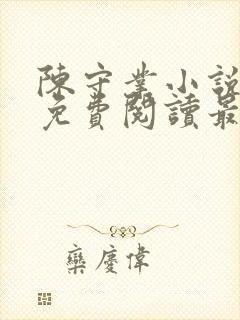 陳守業小說
免費閱讀最
欒慶偉